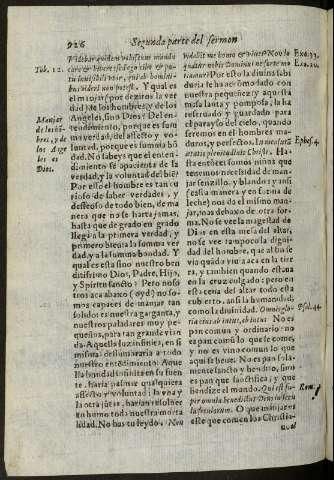 926
Segunda parte del sermon
Videbar quidem vobiscum mandu
care & bibere: sed ego cibo & po-
tu invisibili utor, qui ab homini-
bus videri non potest. Y qual es
el manjar (por deziros la ver
dad) de los hombres, y de los
Angeles, sino Dios? Del en-
tendimiento, porque es sum
ma verdad, del affecto y vo-
luntad, porque es summa bõ
dad. No sabeys que el enten
dimiento se apacienta de la
verdad, y la voluntad del biẽ?
Por esso el hombre es tan cu
rioso de saber verdades, y
desseoso de todo bien, de ma
nera que no se harta jamas,
hasta que de grado en grado
llegue a la primera verdad, y
primero bien: a la summa verdad
dad, y a la summa bondad. Y
qual es esta sino nuestro ben
ditissimo Dios, Padre, Hijo,
y Spiritu sancto? Pero nosotros
acabaxo (oyd) no so-
mos capaces de manjar tan
solido nuestra garganta, y
nuestros paladares muy pe-
queños, para tan grande viãn
da. Aquella luz infinita, en si
misma: deslumbraria a todo
nuestro entendimiento. Aque
lla bondad infinita en su fuen
te, haria pasmar qualquiera
affecto y voluntad: la vna y
la otra jũtas, harian resoluer
en humo toda nuestra morta
lidad. No has tu leydo: Non
Tob. 12.
Manjar
de los hõ-
bres, y de
los Ange
les es
Dios.
videbit me homo & vivet? Non lo
quatur nobis Dominus ne forte mo
riamur? Por esto la divina sabi
duria te ha hecho aquesta pe-
queña apariencia, y aquesta
missa santa, y pomposa, la ha
reservado y guardado para
el parayso del cielo, quando
seremos en el hombres ma-
duros, y perfectos. In mensurã
ætatis plenitudinis Christi. Ha-
sta entonces somos niños que
tenemos necessidad de man-
jar senzillo, y blando: y ansi
(casi a manera y en forma de
leche) nos da el mismo man-
jar, mas debaxo de otra for-
ma. No se vee la magestad de
Dios en esta mesa del altar,
no se vee tampoco la digni-
dad del hombre, que al fin se
vio quãdo viuia acá en la tier
ra, y tambien quando estaua
en la cruz colgado: pero en
esta cena del altar todo esta
cubierto, ansi la humanidad,
como la diuinidad. Omnis glo-
ria eius ab intus, ab intus. No es
pan comun y ordinario: no
es pan comũ lo que se come,
y no es vino comun lo que
aqui se beue. No es pan sola-
mente sancto y bendito, sino
es pan que sanctifica, y que
bendize el mundo. Qui est su-
per omnia benedictus Deus in secu
la seculorum. O que manjar es
este que comen los Christia-
Exo. 33.
Exo. 20.
Ephes. 4.
Psal. 44.
Rom. 9
nos